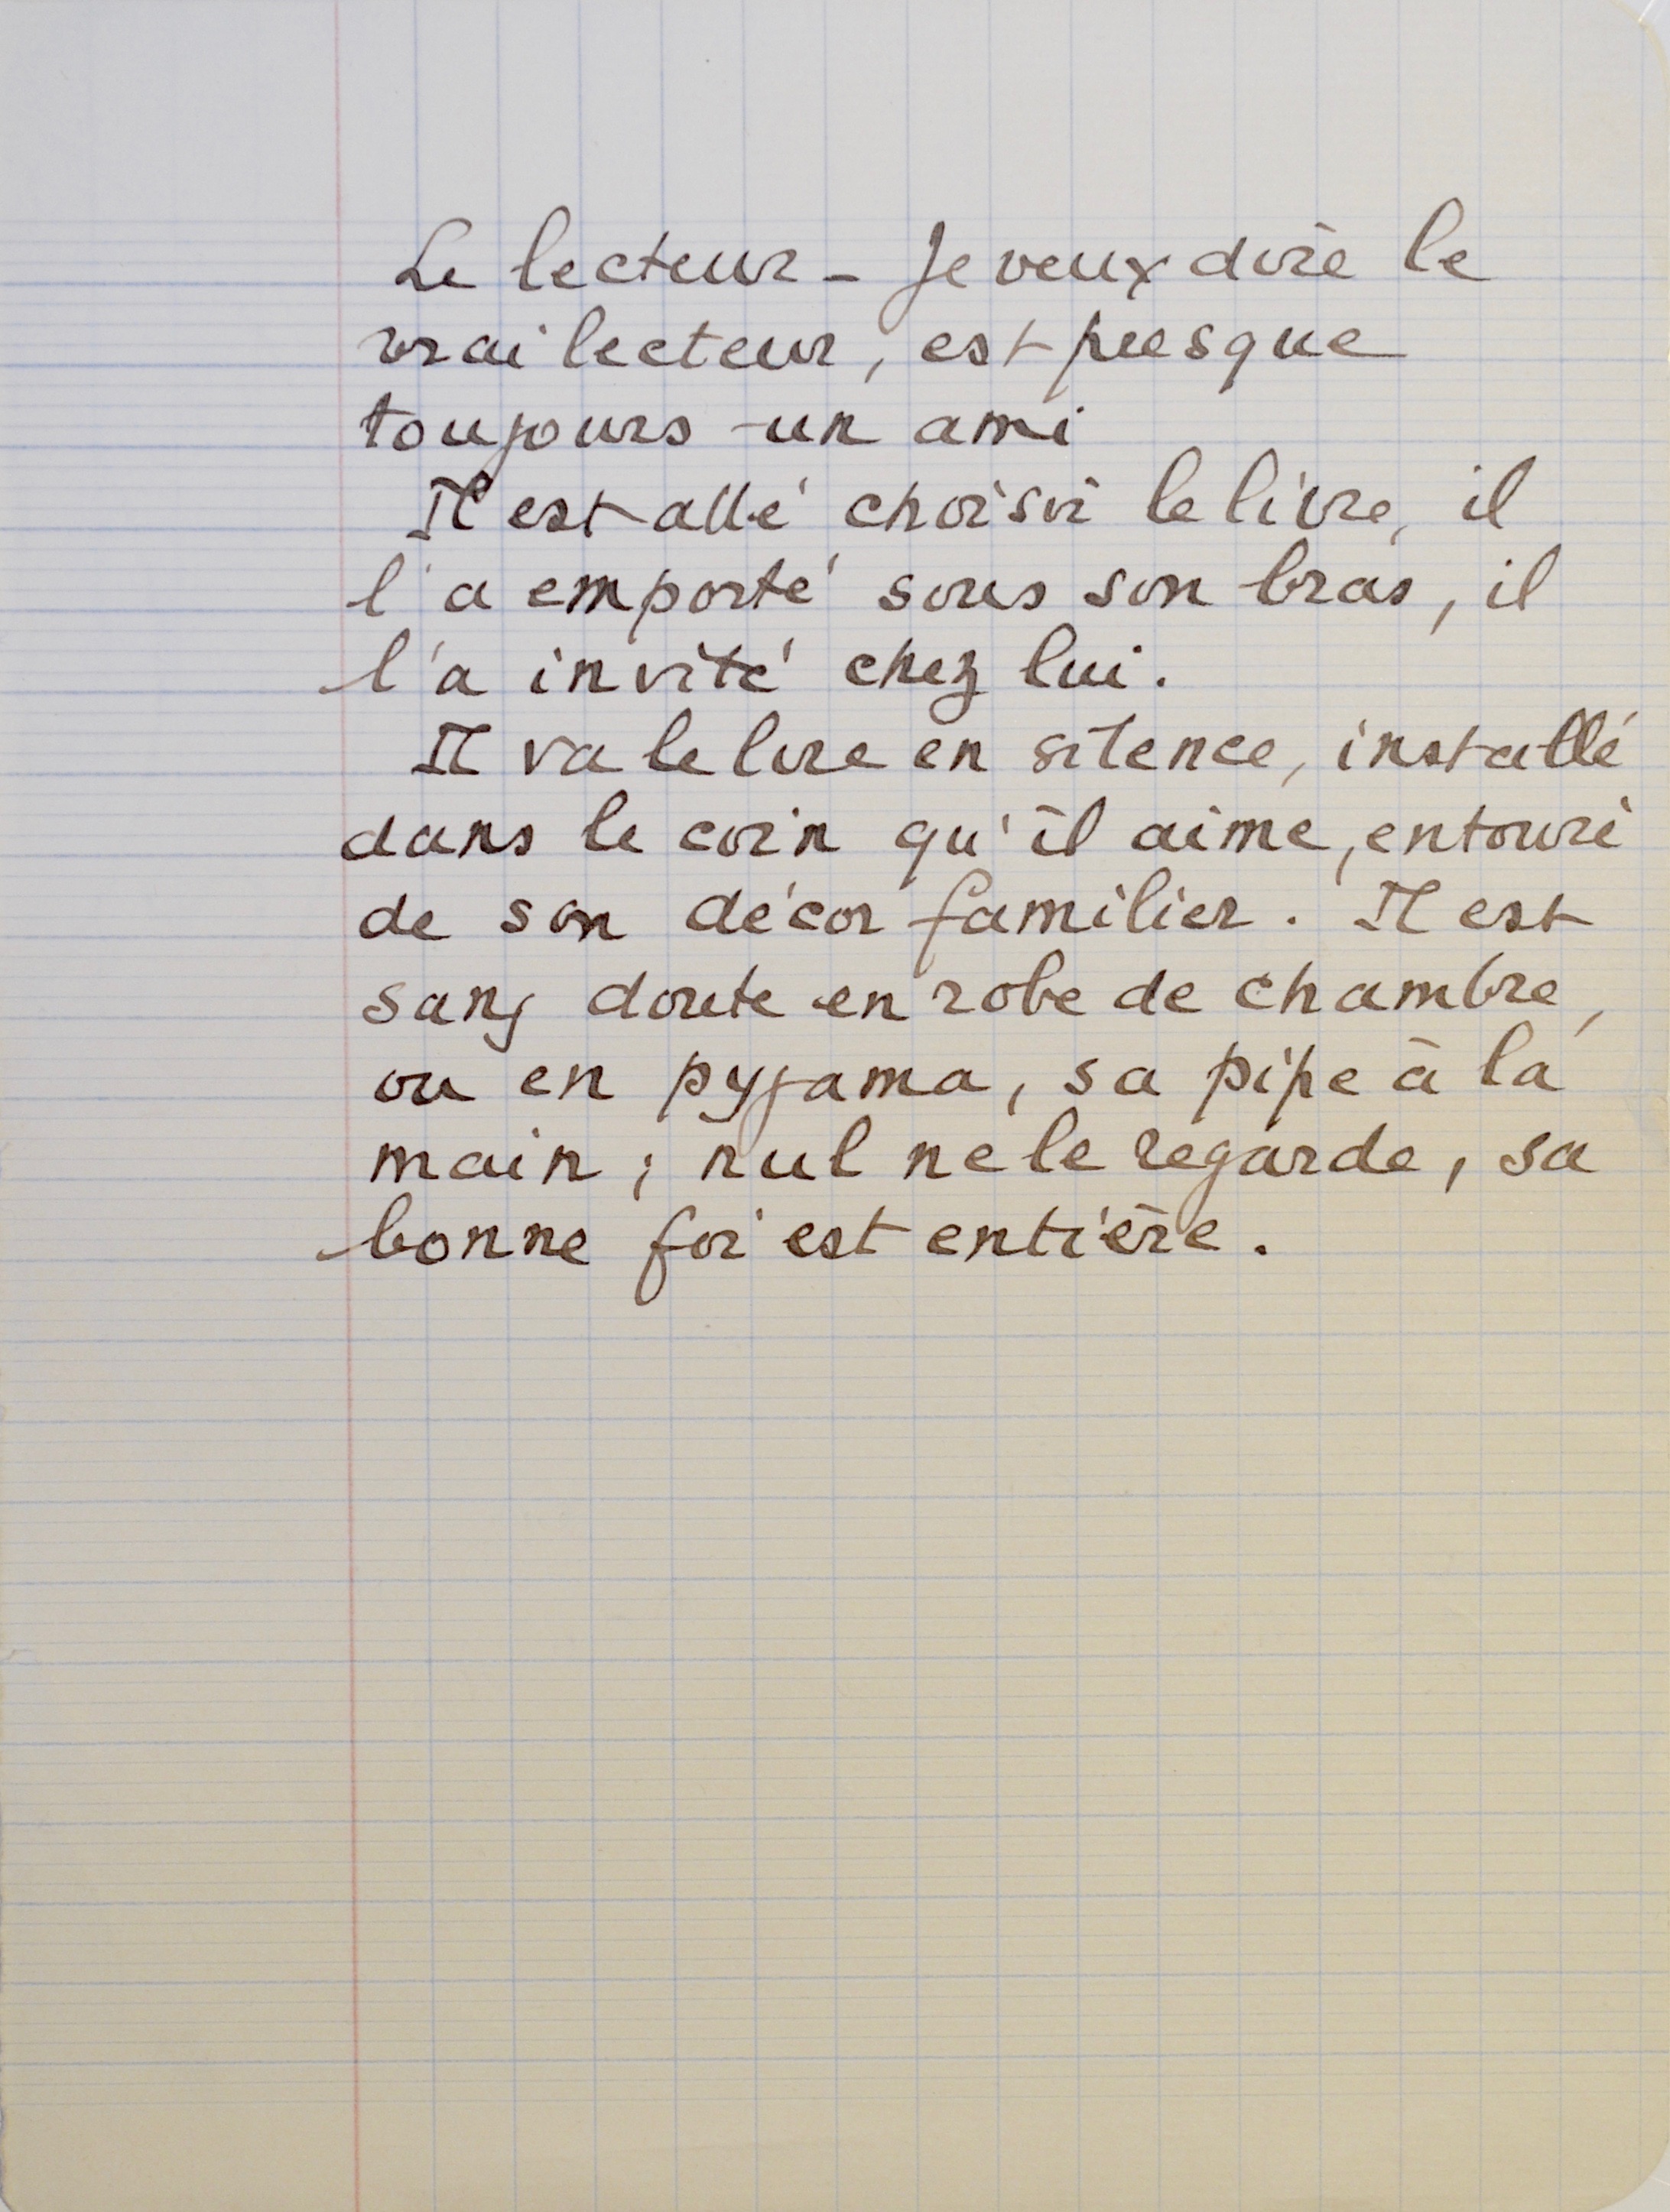 Le lecteur - Je veux dire le
vrai lecteur, est presque
toujours un ami
Il est allé choisir le livre, il
l'a emporté sous son bras, il
l'a invité chez lui.
Il va le lire en silence, installé
dans le coin qu'il aime, entouré
de son décor familier. Il est
sans doute en robe de chambre,
ou en pyjama, sa pipe à la
main ; nul ne le regarde, sa
bonne foi est entière.